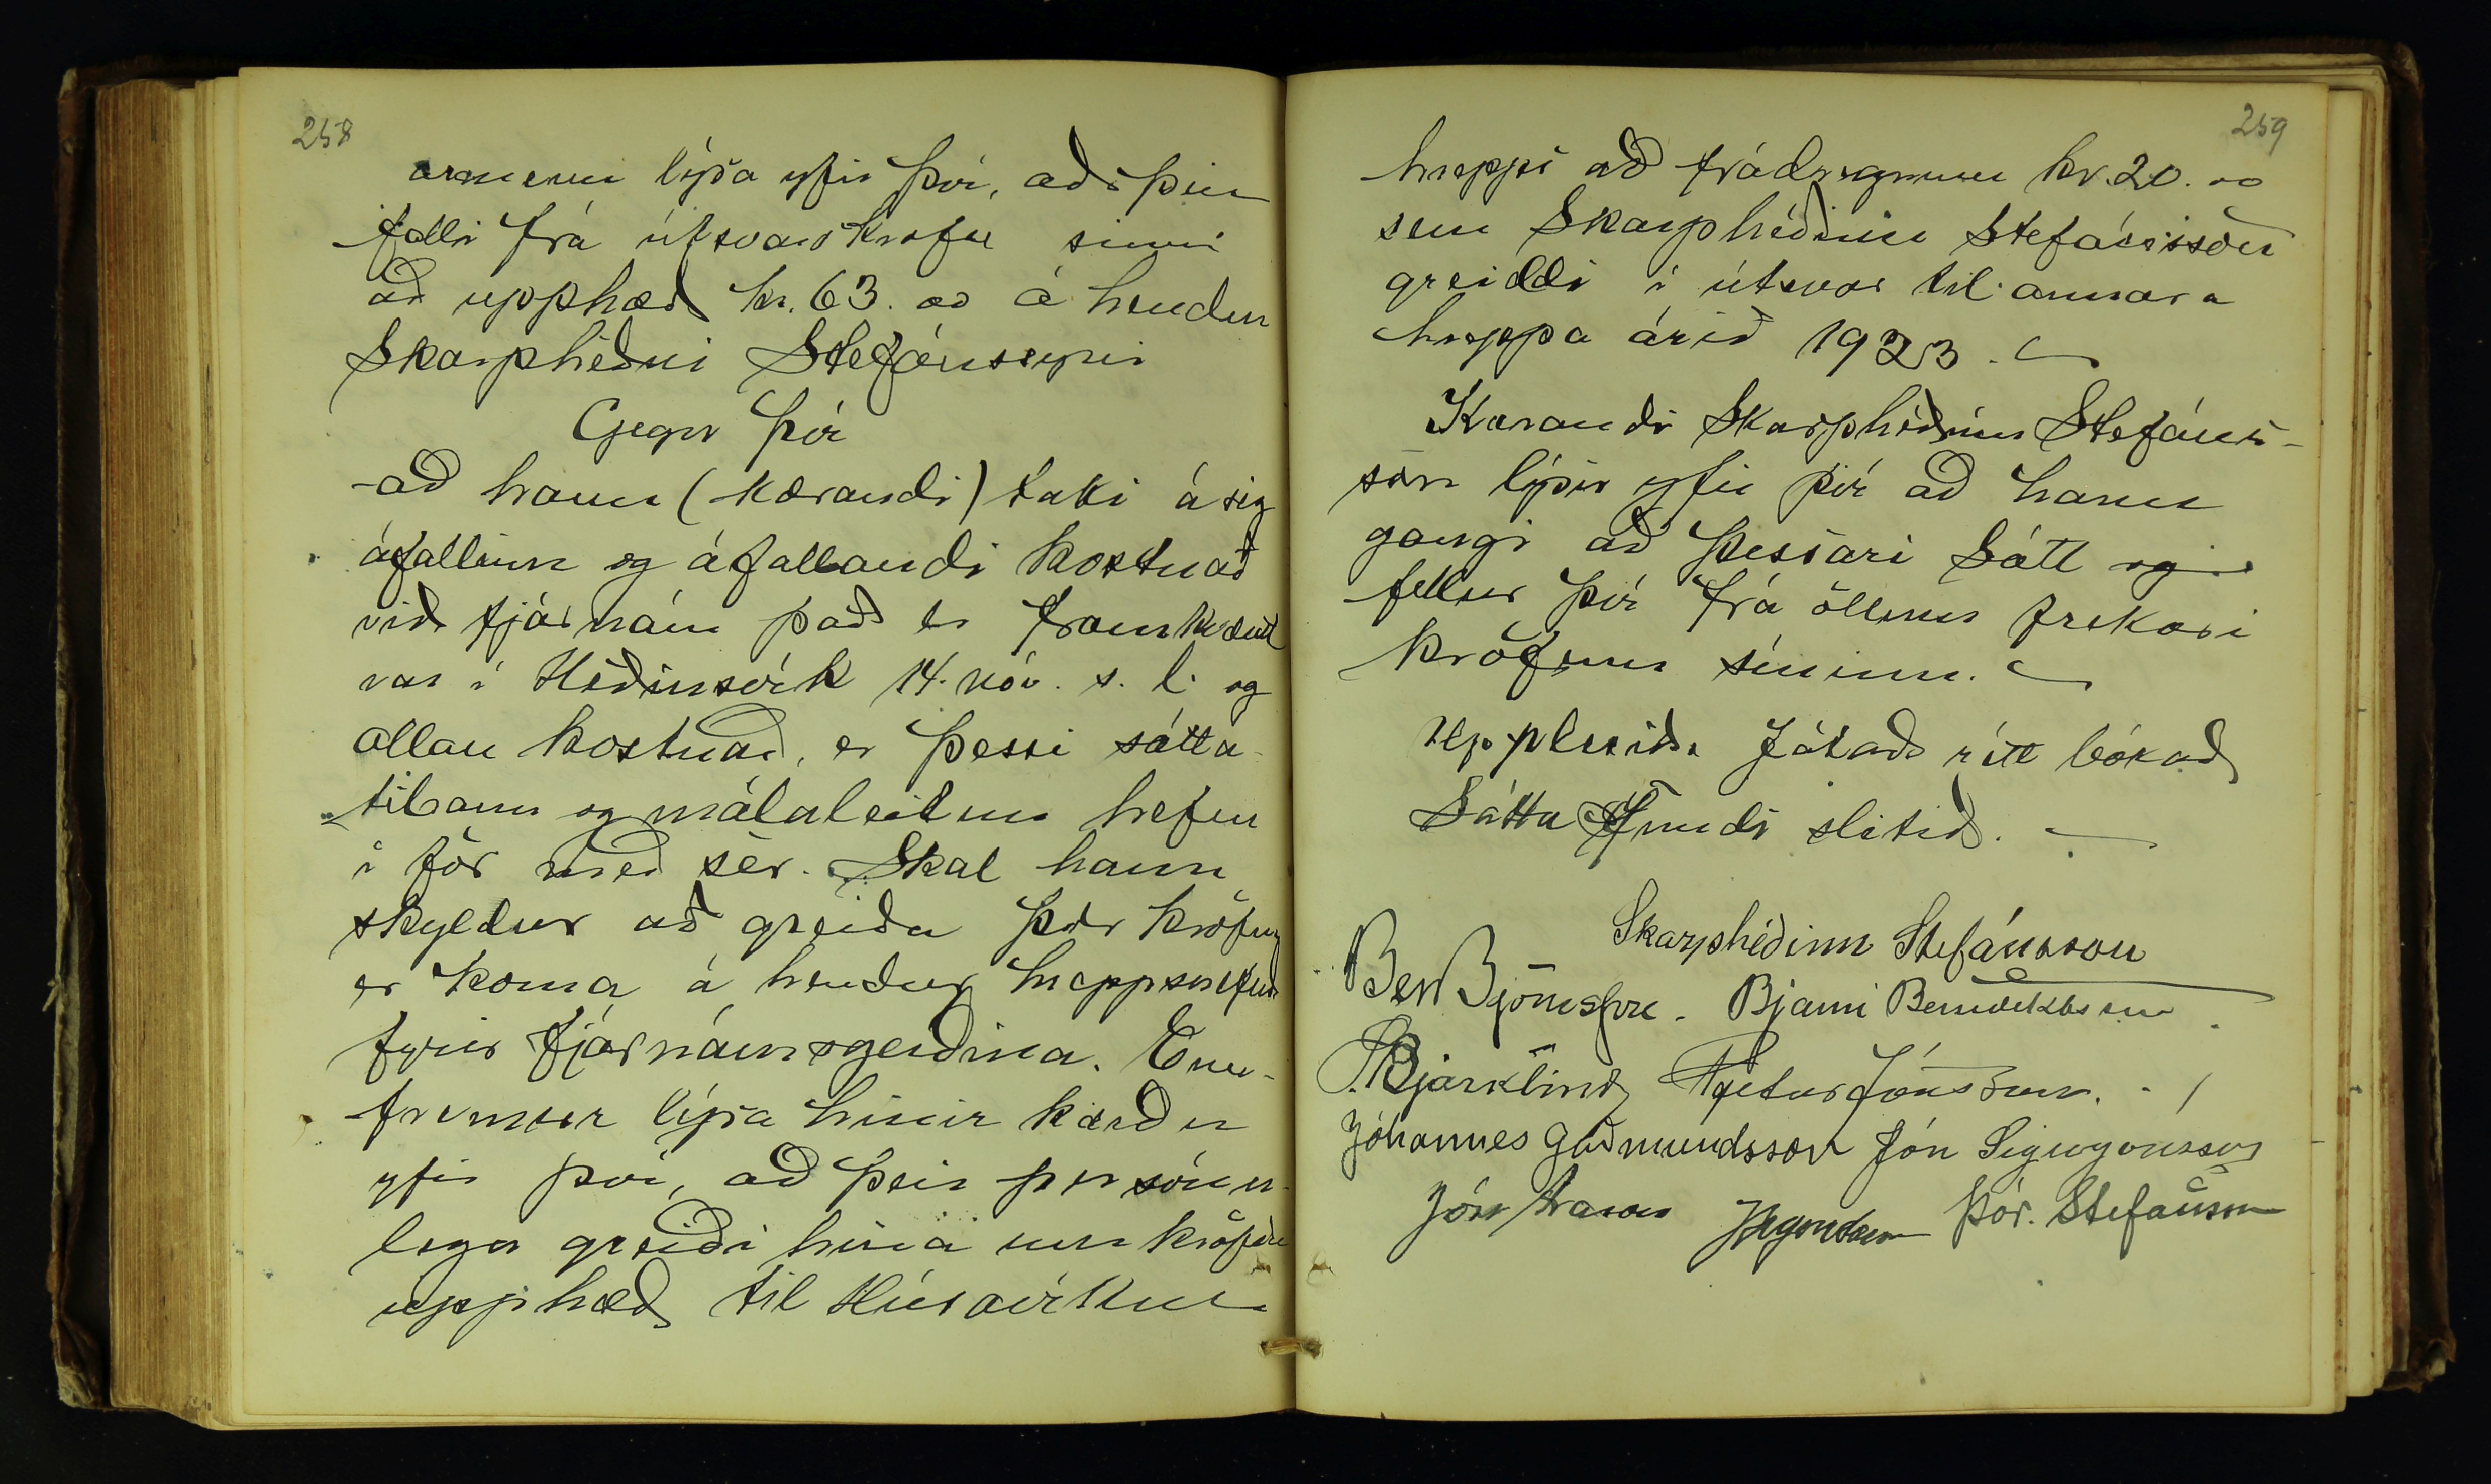 258
armenn lýsa yfir því, að þeir
falli frá útsvarskröfu sinni
að upphæð kr. 63.00 á hendur
Skarphéðni Stefánssyni
Gegn því
að hann (kærandi) taki á sig
áfallinn og áfallandi kostnað
við fjárnám það er framkvæmt
var í Héðinsvík 14. nóv. s. l. og
allan kostnað, er þessi sátta-
tilraun og málaleitun hefur
í för með sér. Skal hann
skyldur að greiða þær kröfur
er koma á hendur hreppsnefnd
fyrir fjárnámsgerðina. Enn-
fremur lýsa hinir kærðu
yfir því, að þeir persónu-
lega greiði hina um kröfðu
upphæð til Húsavíkur
259
hreppi að frádregnum kr. 20.00
sem Skarphéðinn Stefánsson
greiddi í útsvar til annara
hreppa árið 1923.
Kærandi Skarphéðinn Stefáns-
son lýsir yfir því að hann
gangi að þessari Sátt og
fellur því frá öllum frekari
kröfum sínum.
Upplesið. Játað rétt bókað
Sátta fundi slitið.
Skarphéðinn Stefánsson
Ben Björnsson. Bjarni Benediktsson
Bjarklind Pjetur Jónsson.
Jóhannes Guðmundsson Jón Sigurjónsson
Jón Þór. Stefánsson